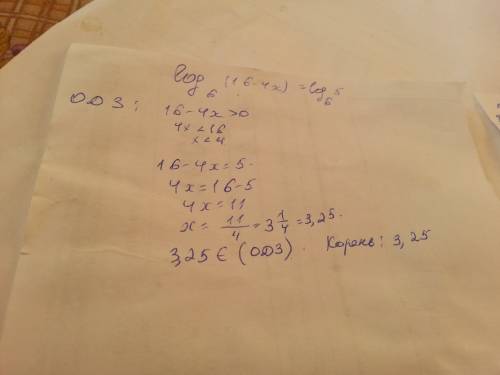 log₆ (16-4x) = log₆ 5
ОДЗ: 16-4x>0
4x<16
x<4
16-4x=5.
4x=16-5
4x=11
x= 11/4 = 3 1/4 = 3,25.
3,25 ∈ (ОДЗ). Корень: 3,25